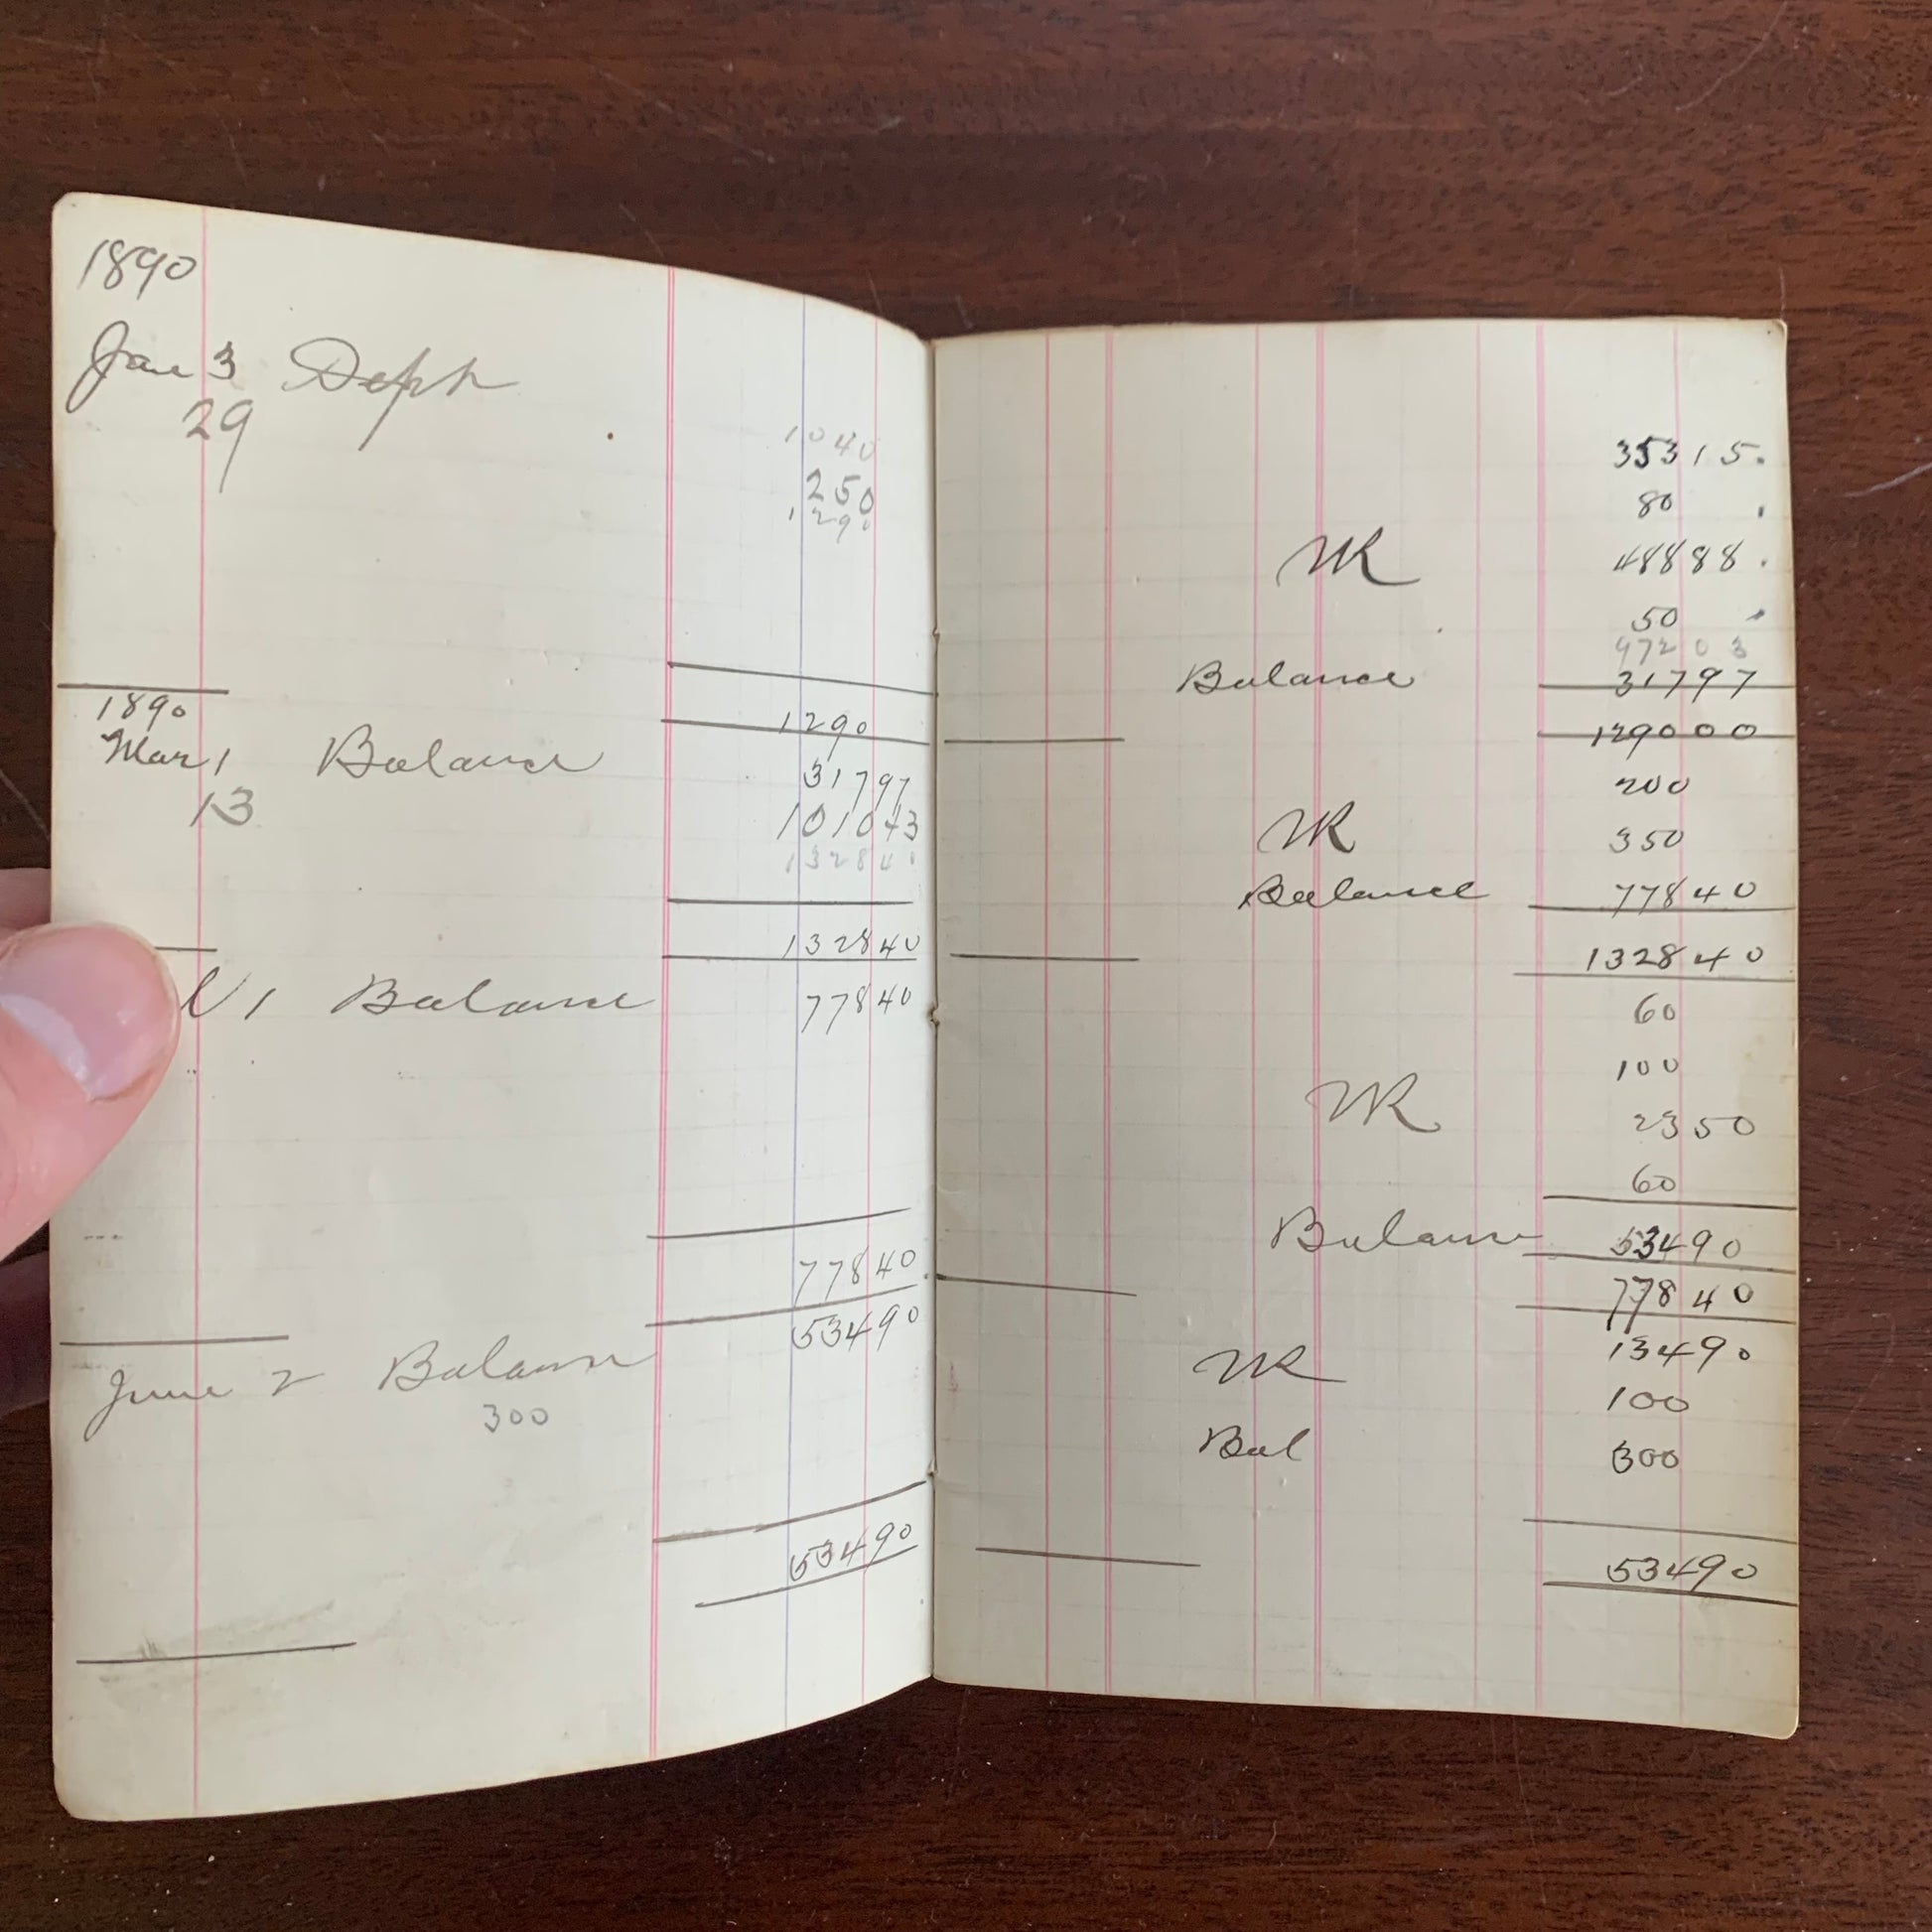 1890
Jan 3 Dept
29
1040
250
1290
1290
1890
Mar 1 Balance 31797
13 101043
132840
132840
1 Balance 77840
77840
53490
June 2 Balance
300
53490
35315.
80
48888.
50
97203
Balance 31797
129000
200
350
Balance 77840
132840
60
100
2350
60
Balance 53490
77840
13490
100
Bal 300
53490